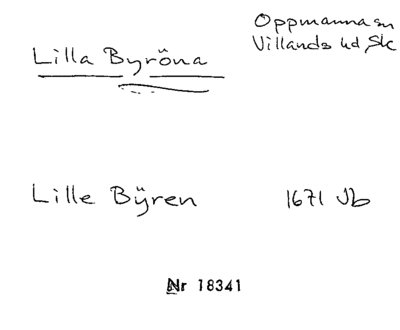 Oppmanna sn
Villands hd, Sk
Lilla Byröna
Lille Bÿren 1671 Jb
Nr 18341